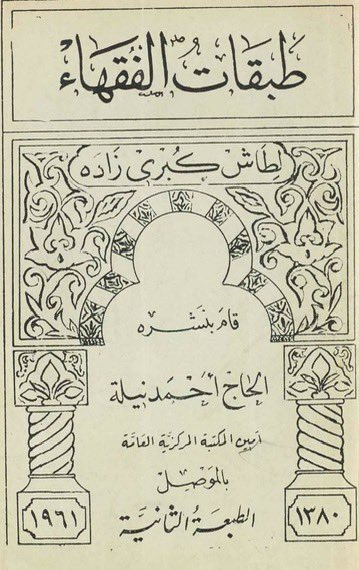 طبقات الفقهاء
لطاش كبرى زاده
قام بنشره
الحاج أحمد نيلة
أمين المكتبة المركزية العامة
بالموصل
الطبعة الثانية
١٣٨٠
١٩٦١